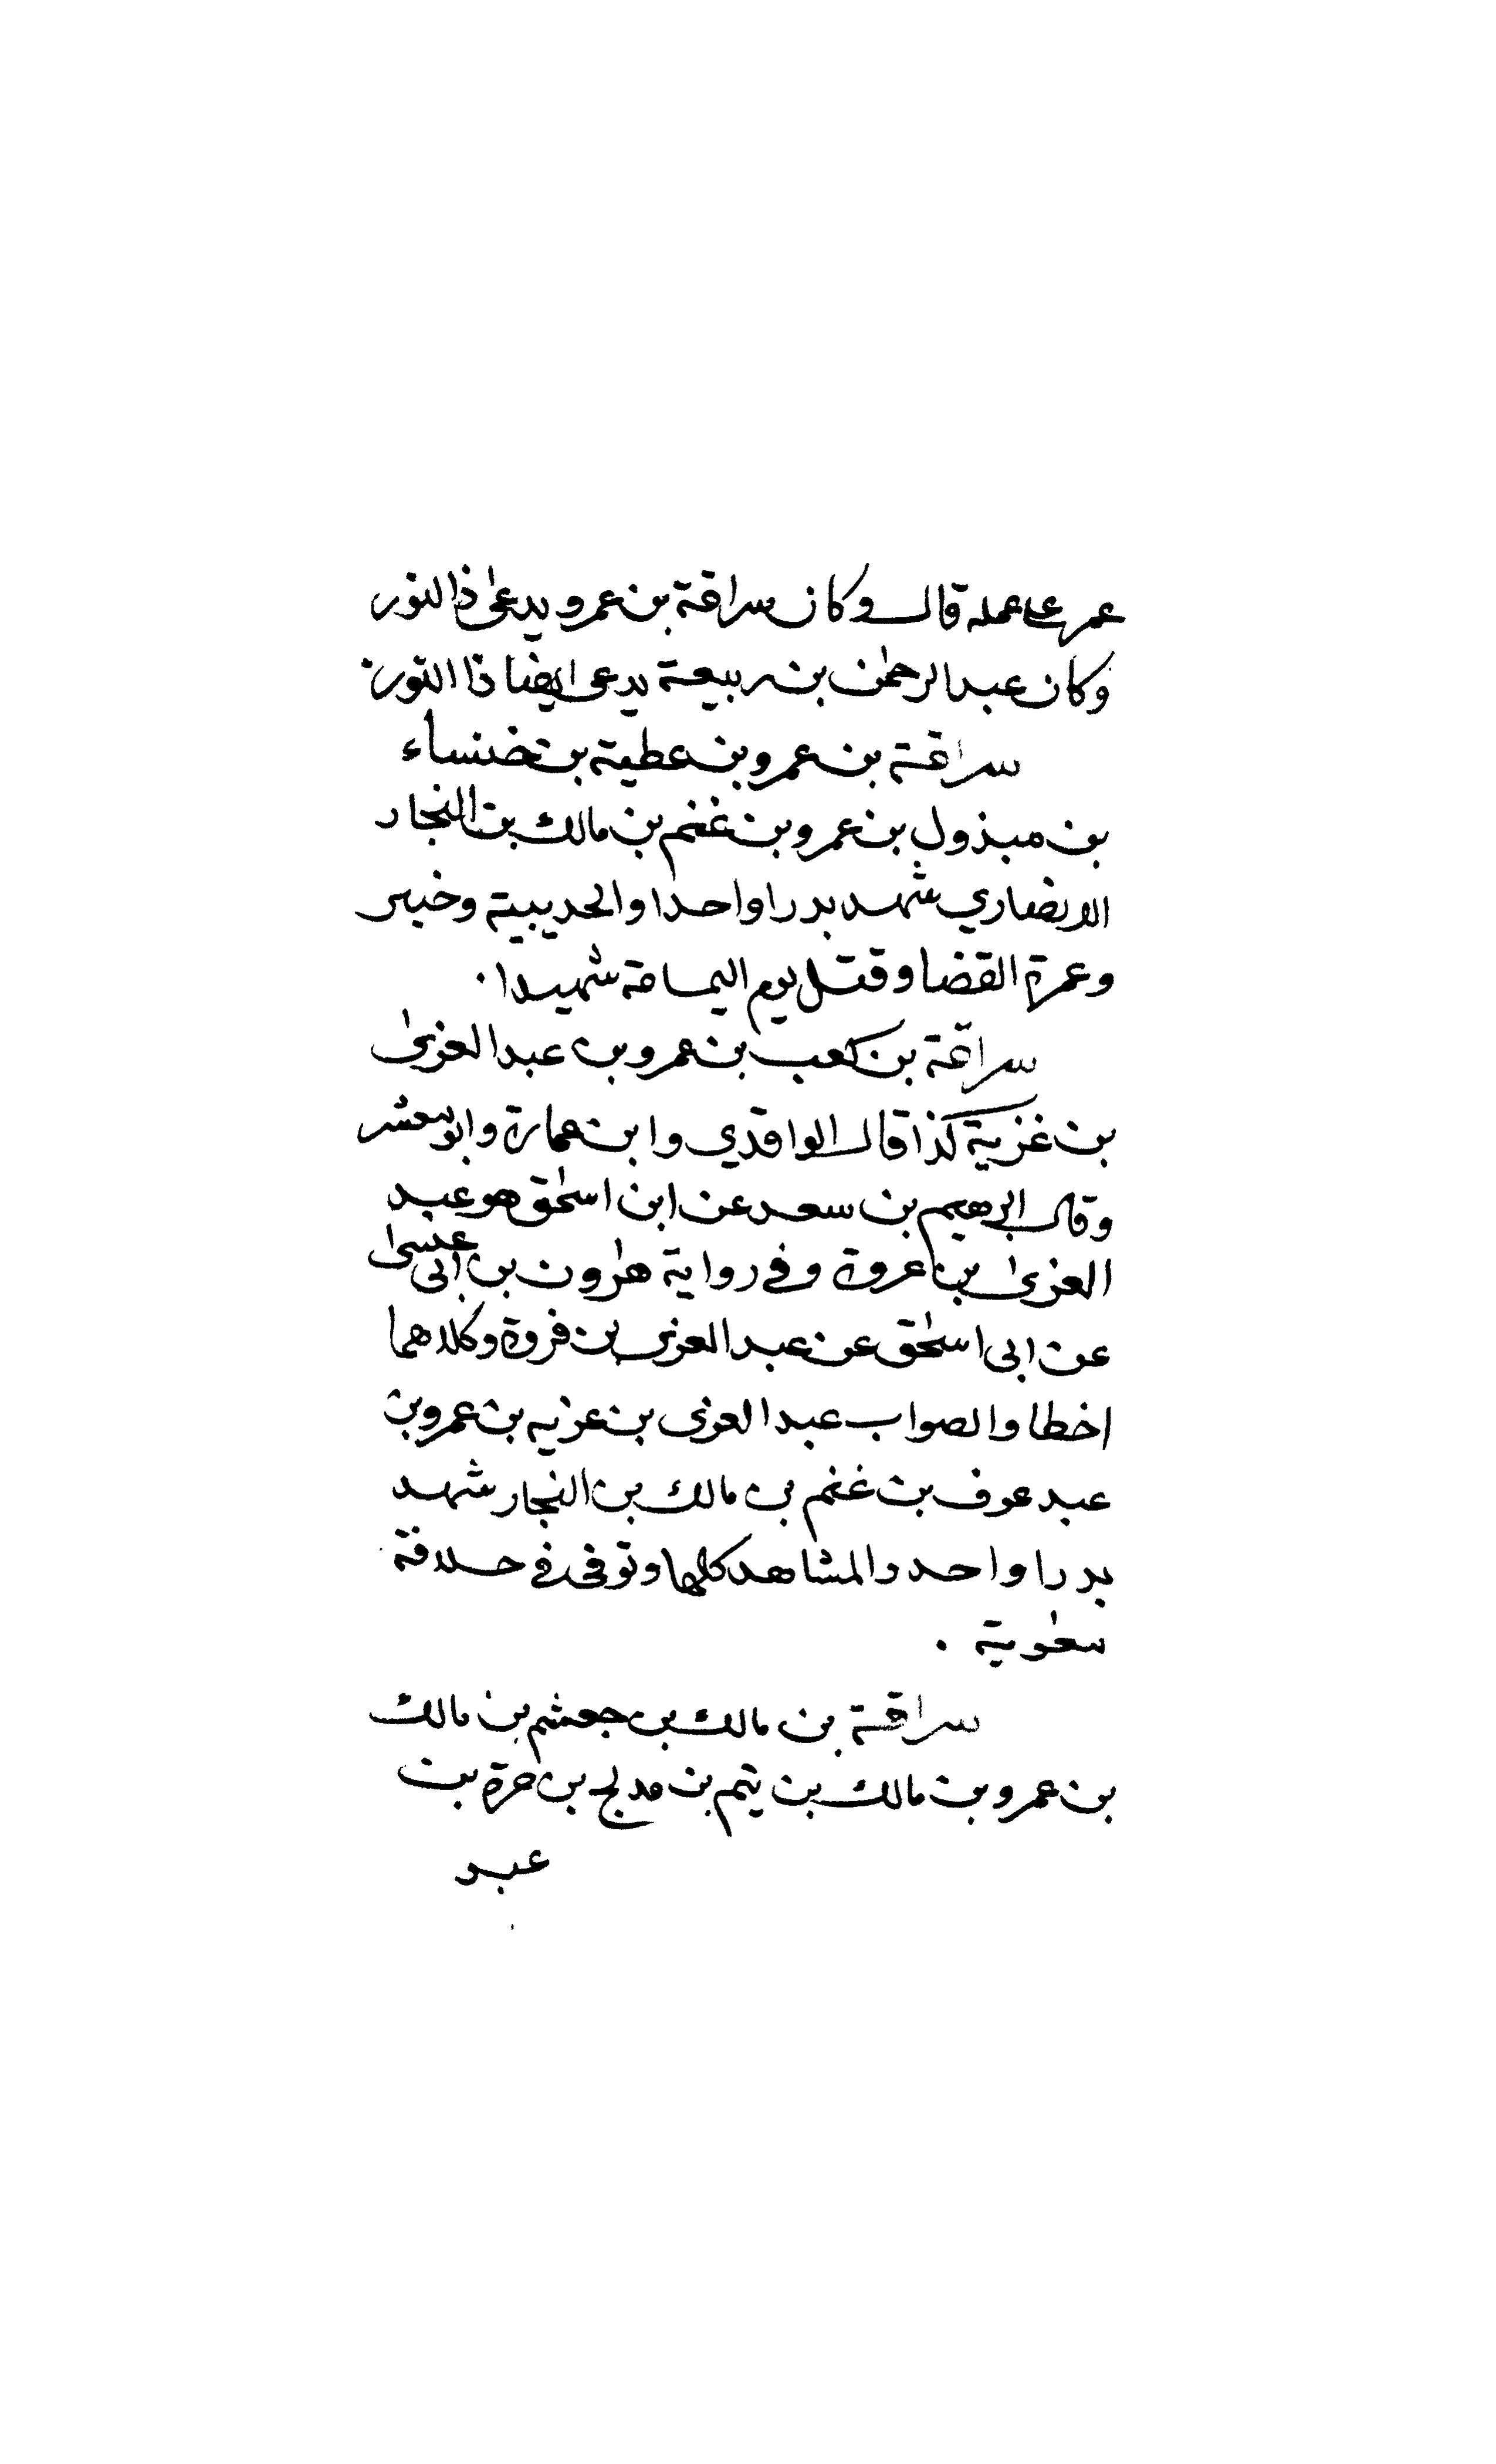 عمر على عمله قال وكان سراقة بن عمرو يدعى ذا النور
وكان عبد الرحمٰن بن ربيعة يدعى ايضا ذا النور
سراقة بن عمرو بن عطية بن خنساء
بن مبذول بن عمرو بن غنم بن مالك بن النجار
الانصاري شهد بدرا واحدا والحديبية وخيبر
وعمرة القضا وقتل يوم اليمامة شهيدا.
سراقة بن كعب بن عمرو بن عبد العزىٰ
بن غزية كذا قال الواقدي وابن عمارة وابو معشر
وقال ابرهيم بن سعد عن ابن اسحٰق هو عبد
العزىٰ بن عروة وفي رواية هٰرون بن ابي عيسى
عن ابي اسحٰق عن عبد العزى بن فروة وكلاهما
اخطا والصواب عبد العزى بن عزيه بن عمرو بن
عبد عوف بن غنم بن مالك بن النجار شهد
بدرا واحد والمشاهد كلها وتوفى في خلافة
معٰوية .
سراقة بن مالك بن جعشم بن مالك
بن عمرو بن مالك بن تيم بن مدلج بن مرة بن
عبد